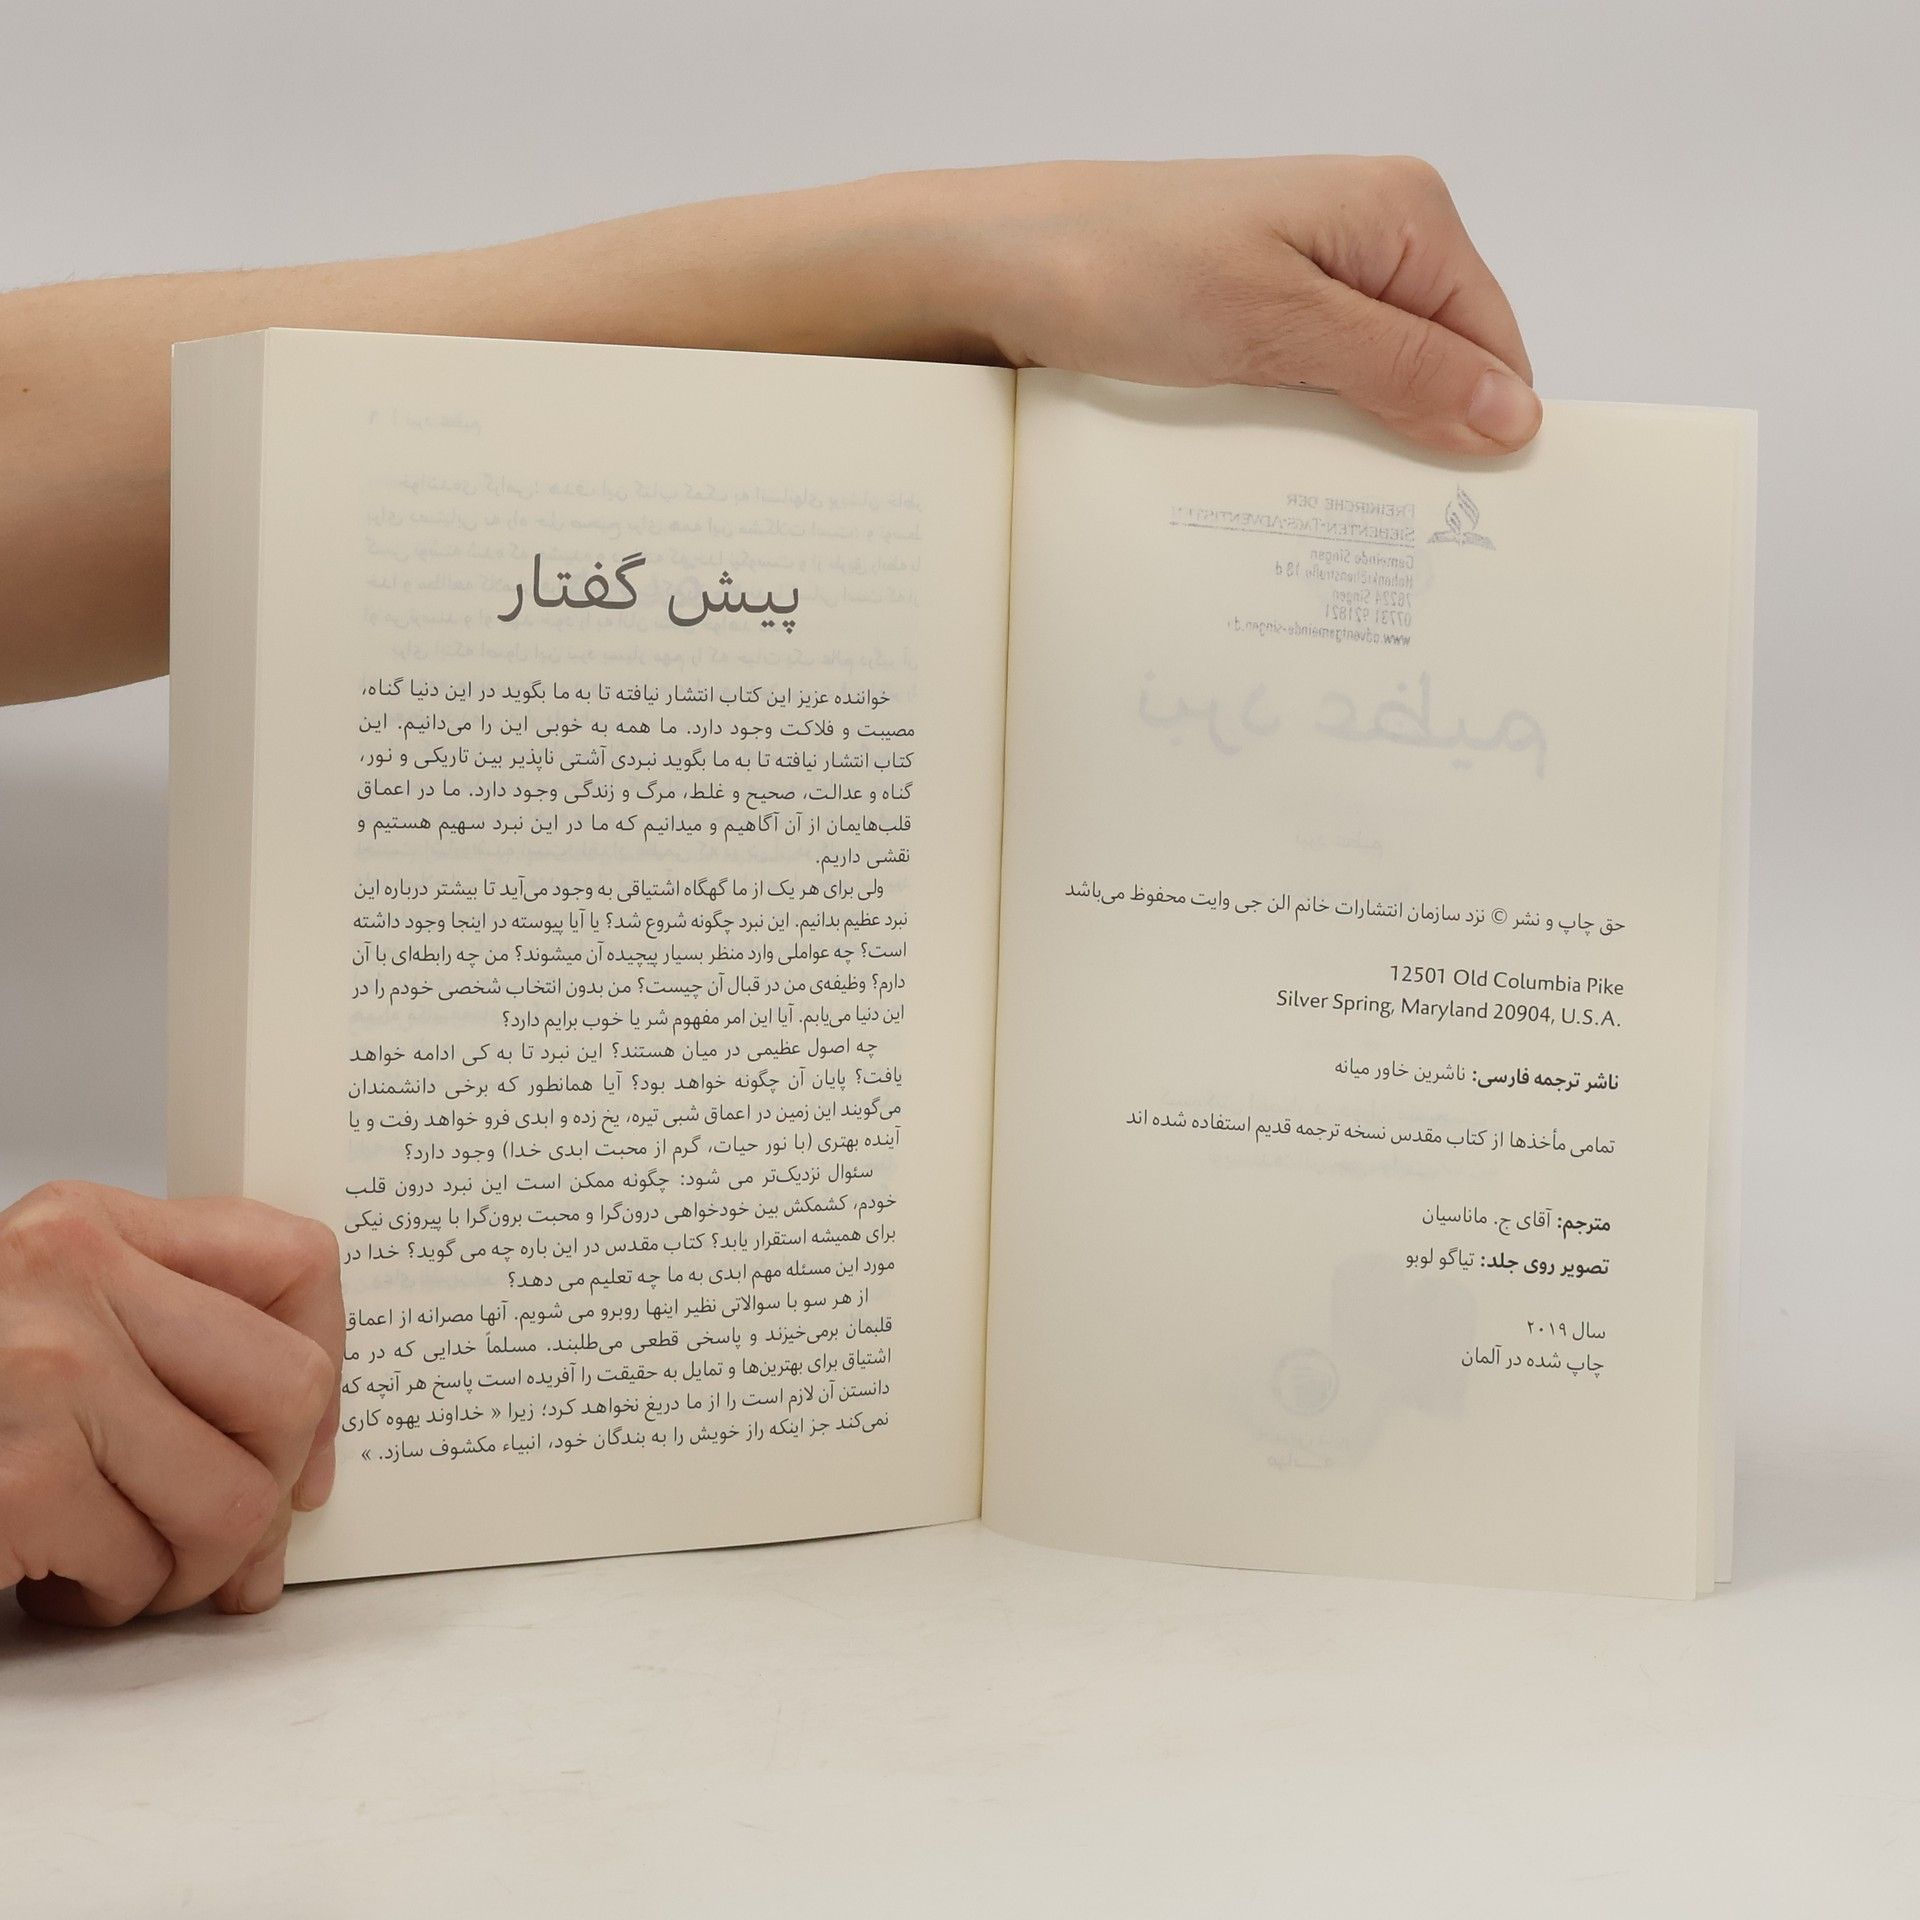 حق چاپ و نشر © نزد سازمان انتشارات خانم الن جی وایت محفوظ می‌باشد
12501 Old Columbia Pike
Silver Spring, Maryland 20904, U.S.A.
ناشر ترجمه فارسی: ناشرین خاور میانه
تمامی مأخذها از کتاب مقدس نسخه ترجمه قدیم استفاده شده اند
مترجم: آقای ج. ماناسیان
تصویر روی جلد: تیاگو لوبو
سال ۲۰۱۹
چاپ شده در آلمان
پیش گفتار
خواننده عزیز این کتاب انتشار نیافته تا به ما بگوید در این دنیا گناه،
مصیبت و فلاکت وجود دارد. ما همه به خوبی این را می‌دانیم. این
کتاب انتشار نیافته تا به ما بگوید نبردی آشتی ناپذیر بین تاریکی و نور،
گناه و عدالت، صحیح و غلط، مرگ و زندگی وجود دارد. ما در اعماق
قلب‌هایمان از آن آگاهیم و میدانیم که ما در این نبرد سهیم هستیم و
نقشی داریم.
ولی برای هر یک از ما گهگاه اشتیاقی به وجود می‌آید تا بیشتر درباره این
نبرد عظیم بدانیم. این نبرد چگونه شروع شد؟ یا آیا پیوسته در اینجا وجود داشته
است؟ چه عواملی وارد منظر بسیار پیچیده آن میشوند؟ من چه رابطه‌ای با آن
دارم؟ وظیفه‌ی من در قبال آن چیست؟ من بدون انتخاب شخصی خودم را در
این دنیا می‌یابم. آیا این امر مفهوم شر یا خوب برایم دارد؟
چه اصول عظیمی در میان هستند؟ این نبرد تا به کی ادامه خواهد
یافت؟ پایان آن چگونه خواهد بود؟ آیا همانطور که برخی دانشمندان
می‌گویند این زمین در اعماق شبی تیره، یخ زده و ابدی فرو خواهد رفت و یا
آینده بهتری (با نور حیات، گرم از محبت ابدی خدا) وجود دارد؟
سئوال نزدیک‌تر می شود: چگونه ممکن است این نبرد درون قلب
خودم، کشمکش بین خودخواهی درون‌گرا و محبت برون‌گرا با پیروزی نیکی
برای همیشه استقرار یابد؟ کتاب مقدس در این باره چه می گوید؟ خدا در
مورد این مسئله مهم ابدی به ما چه تعلیم می دهد؟
از هر سو با سوالاتی نظیر اینها روبرو می شویم. آنها مصرانه از اعماق
قلبمان برمی‌خیزند و پاسخی قطعی می‌طلبند. مسلماً خدایی که در ما
اشتیاق برای بهترین‌ها و تمایل به حقیقت را آفریده است پاسخ هر آنچه که
دانستن آن لازم است را از ما دریغ نخواهد کرد؛ زیرا « خداوند یهوه کاری
نمی‌کند جز اینکه راز خویش را به بندگان خود، انبیاء مکشوف سازد. »